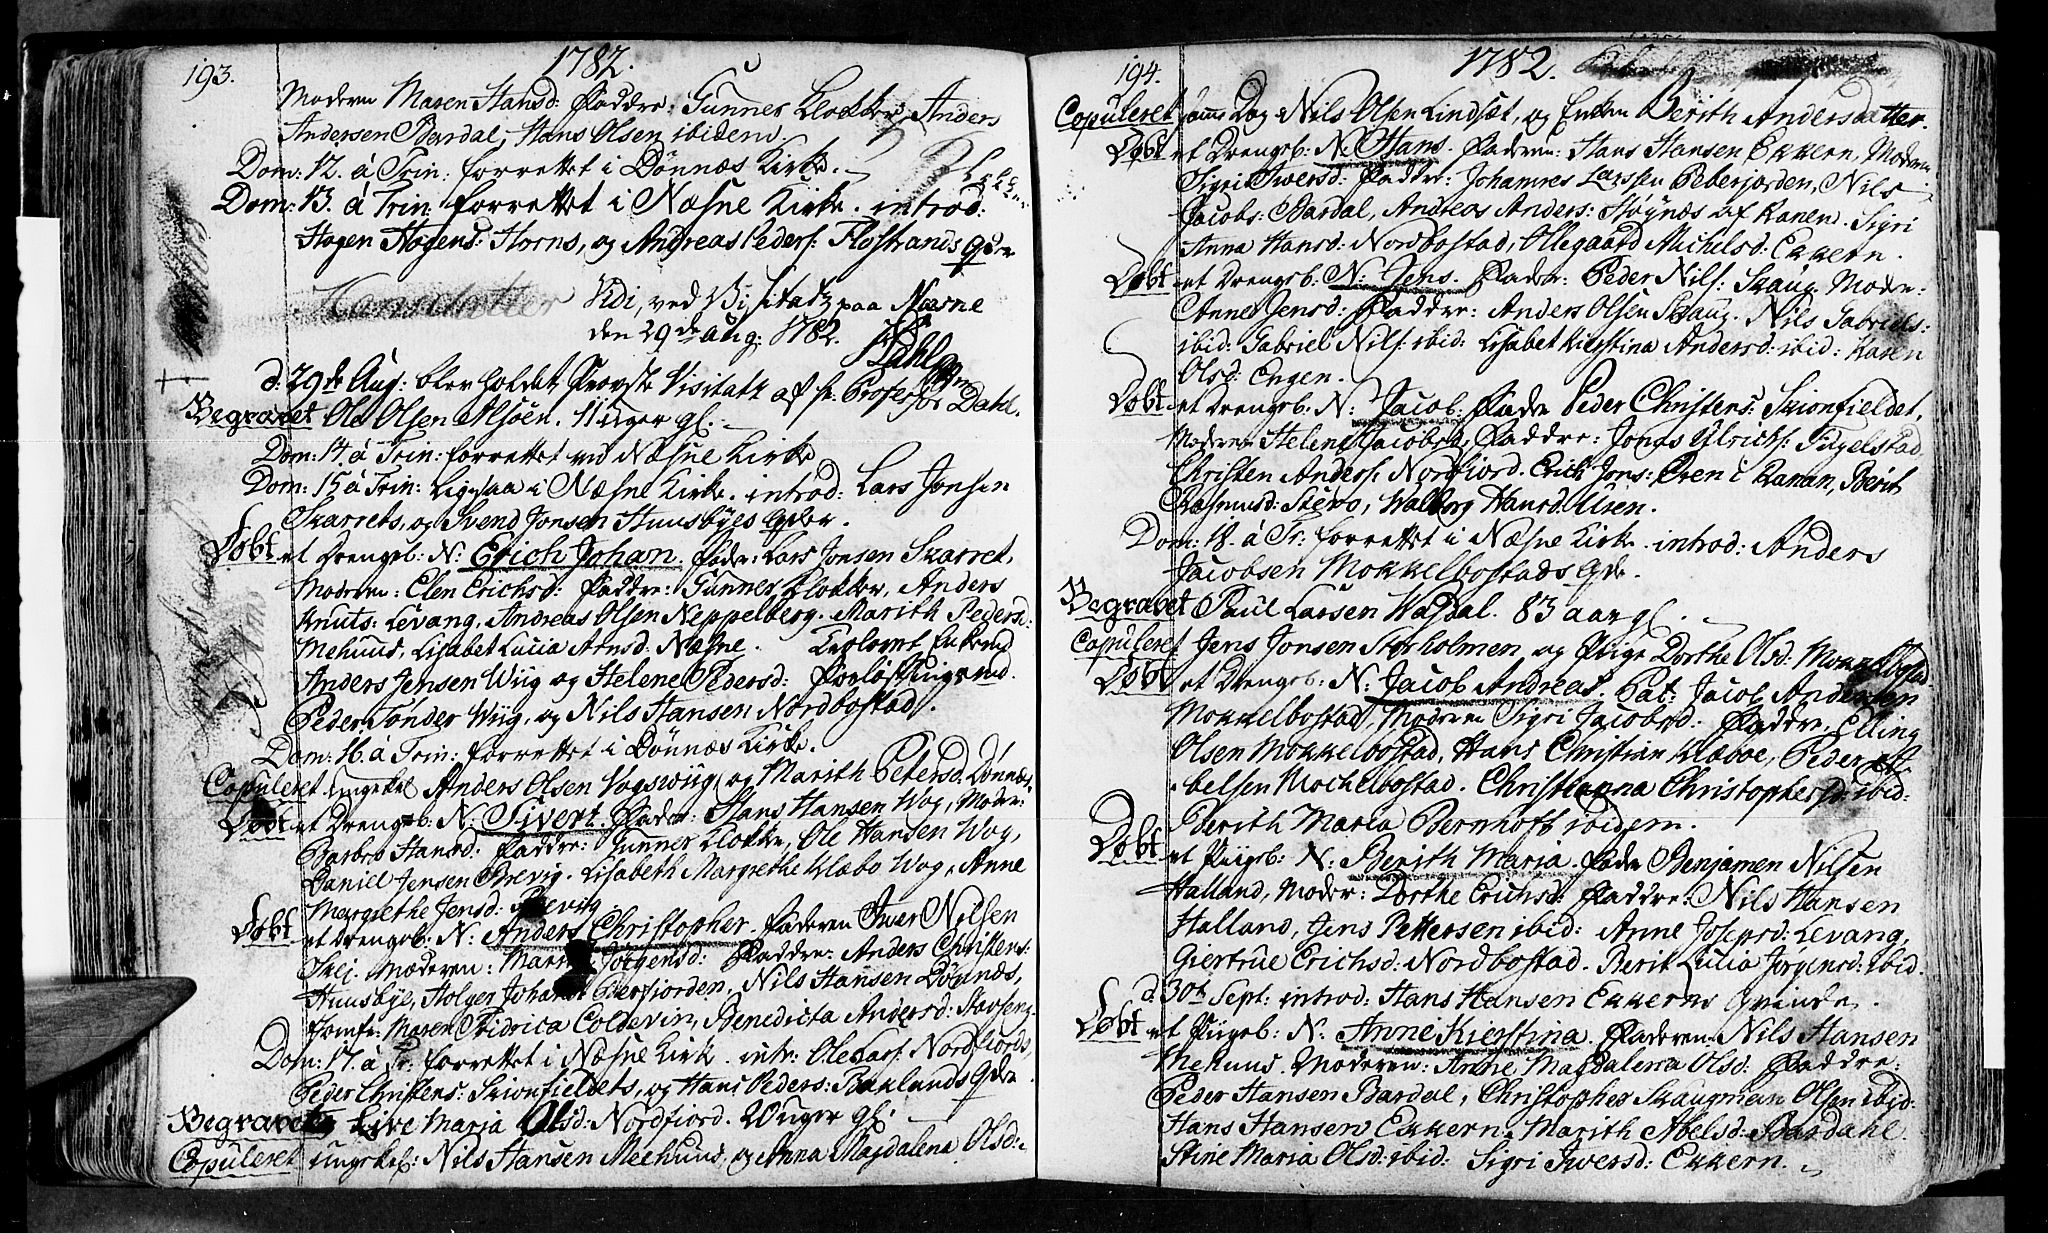 193.
1782.
Moderen Maren Hansd: Faddre: Gunner Klokker, Anders
Andersen Bardal, Hans Olsen ibidem.
Dom: 12. á Trin: forrettet i Dønnæs Kirke.
Dom: 13. á Trin: forrettet i Næsne Kirke. introd:
Hagen Hagens: Horns, og Andreas Peders: Flostrands Qder
Hansdatter
Vidi, ved Visitatz paa Næsne
den 29de Aug: 1782. Dahl
d: 29de Aug: blev holdet Provste Visitatz af hr: Professor Dahl.
Begravet Ole Olsen Alsøen. 11 uger gl.
Dom: 14 á Trin: forrettet ved Næsne Kirke
Dom: 15 á Trin: ligesaa i Næsne Kirke. introd: Lars Jonsen
Skarrets, og Svend Jonsen Huusbyes Qder.
Døbt et Drengeb: N: Erich Johan. Fader: Lars Jonsen Skarret,
Moderen: Elen Erichsd: Faddre: Gunner Klokker, Anders
Knuts: Levang, Andreas Olsen Neppelberg. Marith Pedersd:
Mehuus, Lisabet Lucia Arnsd: Næsne. Trolovet Enkemd
Anders Jensen Wiig og Helene Pedersd: Forløftningsmd.
Peder Tønder Wiig, og Nils Hansen Nordbostad.
Dom: 16. á Trin: forrettet i Dønnæs Kirke.
Copuleret Ungekel Anders Olsen Vogswiig og Marith Petersd. Dønnæs
Døbt et Drengeb: N: Sivert. Fader: Hans Hansen Wog, Moder:
Barbro Hansd: Faddre: Gunner Klokker, Ole Hansen Wog,
Daniel Jensen Brevig. Lisabeth Margrethe Klæbo Wog, Anne
Margrethe Jensd: Brevig.
Døbt et Drengeb: N: Anders Christopher. Faderen Iver Nilsen
Skei. Moderen: Jørgensd: Faddre: Anders Christens:
Huusbye, Holger Johan Eberfiorden, Nils Hansen Dønnæs,
Jomfr: Maren Fridrica Coldevin, Benedicta Andersd: Stavseng
Dom: 17. á Tr: forrettet i Næsne Kirke. intr: Ole Lars: Nordfiords,
Peder Christens: Skionfieldets, og Hans Peders: Baklands Qder.
Begravet Live Maria Olsd: Nordfiord. 20 uger gl.
Copuleret Ungekel: Nils Hansen Meehuus, og Anna Magdalena Olsd:
194.
1782.
Copuleret samme Dag Nils Olsen Lindsæt, og Enken Berith Andersdatter.
Døbt et Drengeb: N: Hans. Faderen: Hans Hansen Ekkern, Moderen
Sigri Iwersd: Faddre: Johannes Larssen Eberfiorden, Nils
Jacobs: Bardal, Andreas Anders: Høgnæs af Ranen. Sigri
Anna Hansd: Nordbostad, Ollegaard Michelsd: Ekkern.
Døbt et Drengeb: N: Jens. Fader: Peder Nils: Skaug. Moder:
Anne Jensd: Faddre: Anders Olsen Skaug. Nils Gabriels:
ibid: Gabriel Nils: ibid: Lisabet Kirstina Andersd: ibid: Karen
Olsd: Engen.
Døbt et Drengeb: N: Jacob. Fader Peder Christens: Skionfieldet,
Moderen Helene Jacobsd, Faddre: Jonas Ulrichs: Tigelstad
Christen Anders: Nordfiord. Erich Jons: Even i Ranan, Berit
Rasmusd: Stevo, Walborg Hansd: Ulsen.
Dom: 18. á Tr: forrettet i Næsne Kirke. introd: Anders
Jacobsen Mokkelbostads Qde.
Begravet Paul Larsen Wasdal. 83 aar gl.
Copuleret Jens Jonsen Storholmen og Piige Dorthe Olsd: Mokkelbostad.
Døbt et Drengeb: N: Jacob Andreas. Pat: Jacob Andersen
Mokkelbostad, Moderen Sigri Jacobsd: Faddre: Elling
Olsen Mokkelbostad, Hans Christian Klæboe, Peder
belsen Mochelbostad. Christianna Christophersd: ibid:
Berith Maria Bernhoft ibidem.
Døbt et Piigeb: N: Berith Maria. Fader Benjamen Nilsen
Halland, Moder: Dorthe Erichsd: Faddre: Nils Hansen
Halland, Jens Pettersen ibid: Anne Josepsd: Levang,
Giertrue Erichsd: Nordbostad. Berit Lucia Jorgensd: ibid.
d. 30te Sept: introd: Hans Hansen Ekkerns Qvinde.
Døbt et Piigeb: N: Anne Kierstina. Faderen Nils Hansen
Mehuus. Moderen: Anne Magdalena Olsd: Faddre:
Peder Hansen Bardal, Christopher Skaugman Olsen ibid:
Hans Hansen Ekkern. Marith Abelsd: Bardahl.
Stine Maria Olsd: ibid: Sigri Iwersd: Ekkern.